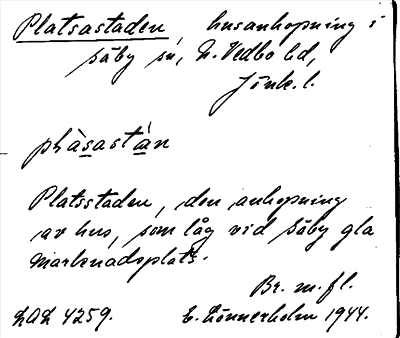 Platsastaden, husanhopning i
Säby sn, N. Vedbo hd,
Jönk. l.
plàsastán
Platsstaden, den anhopning
av hus, som låg vid Säby gla
marknadsplats.
Br. m. fl.
LAL 4259. E. Lönnerholm 1944.